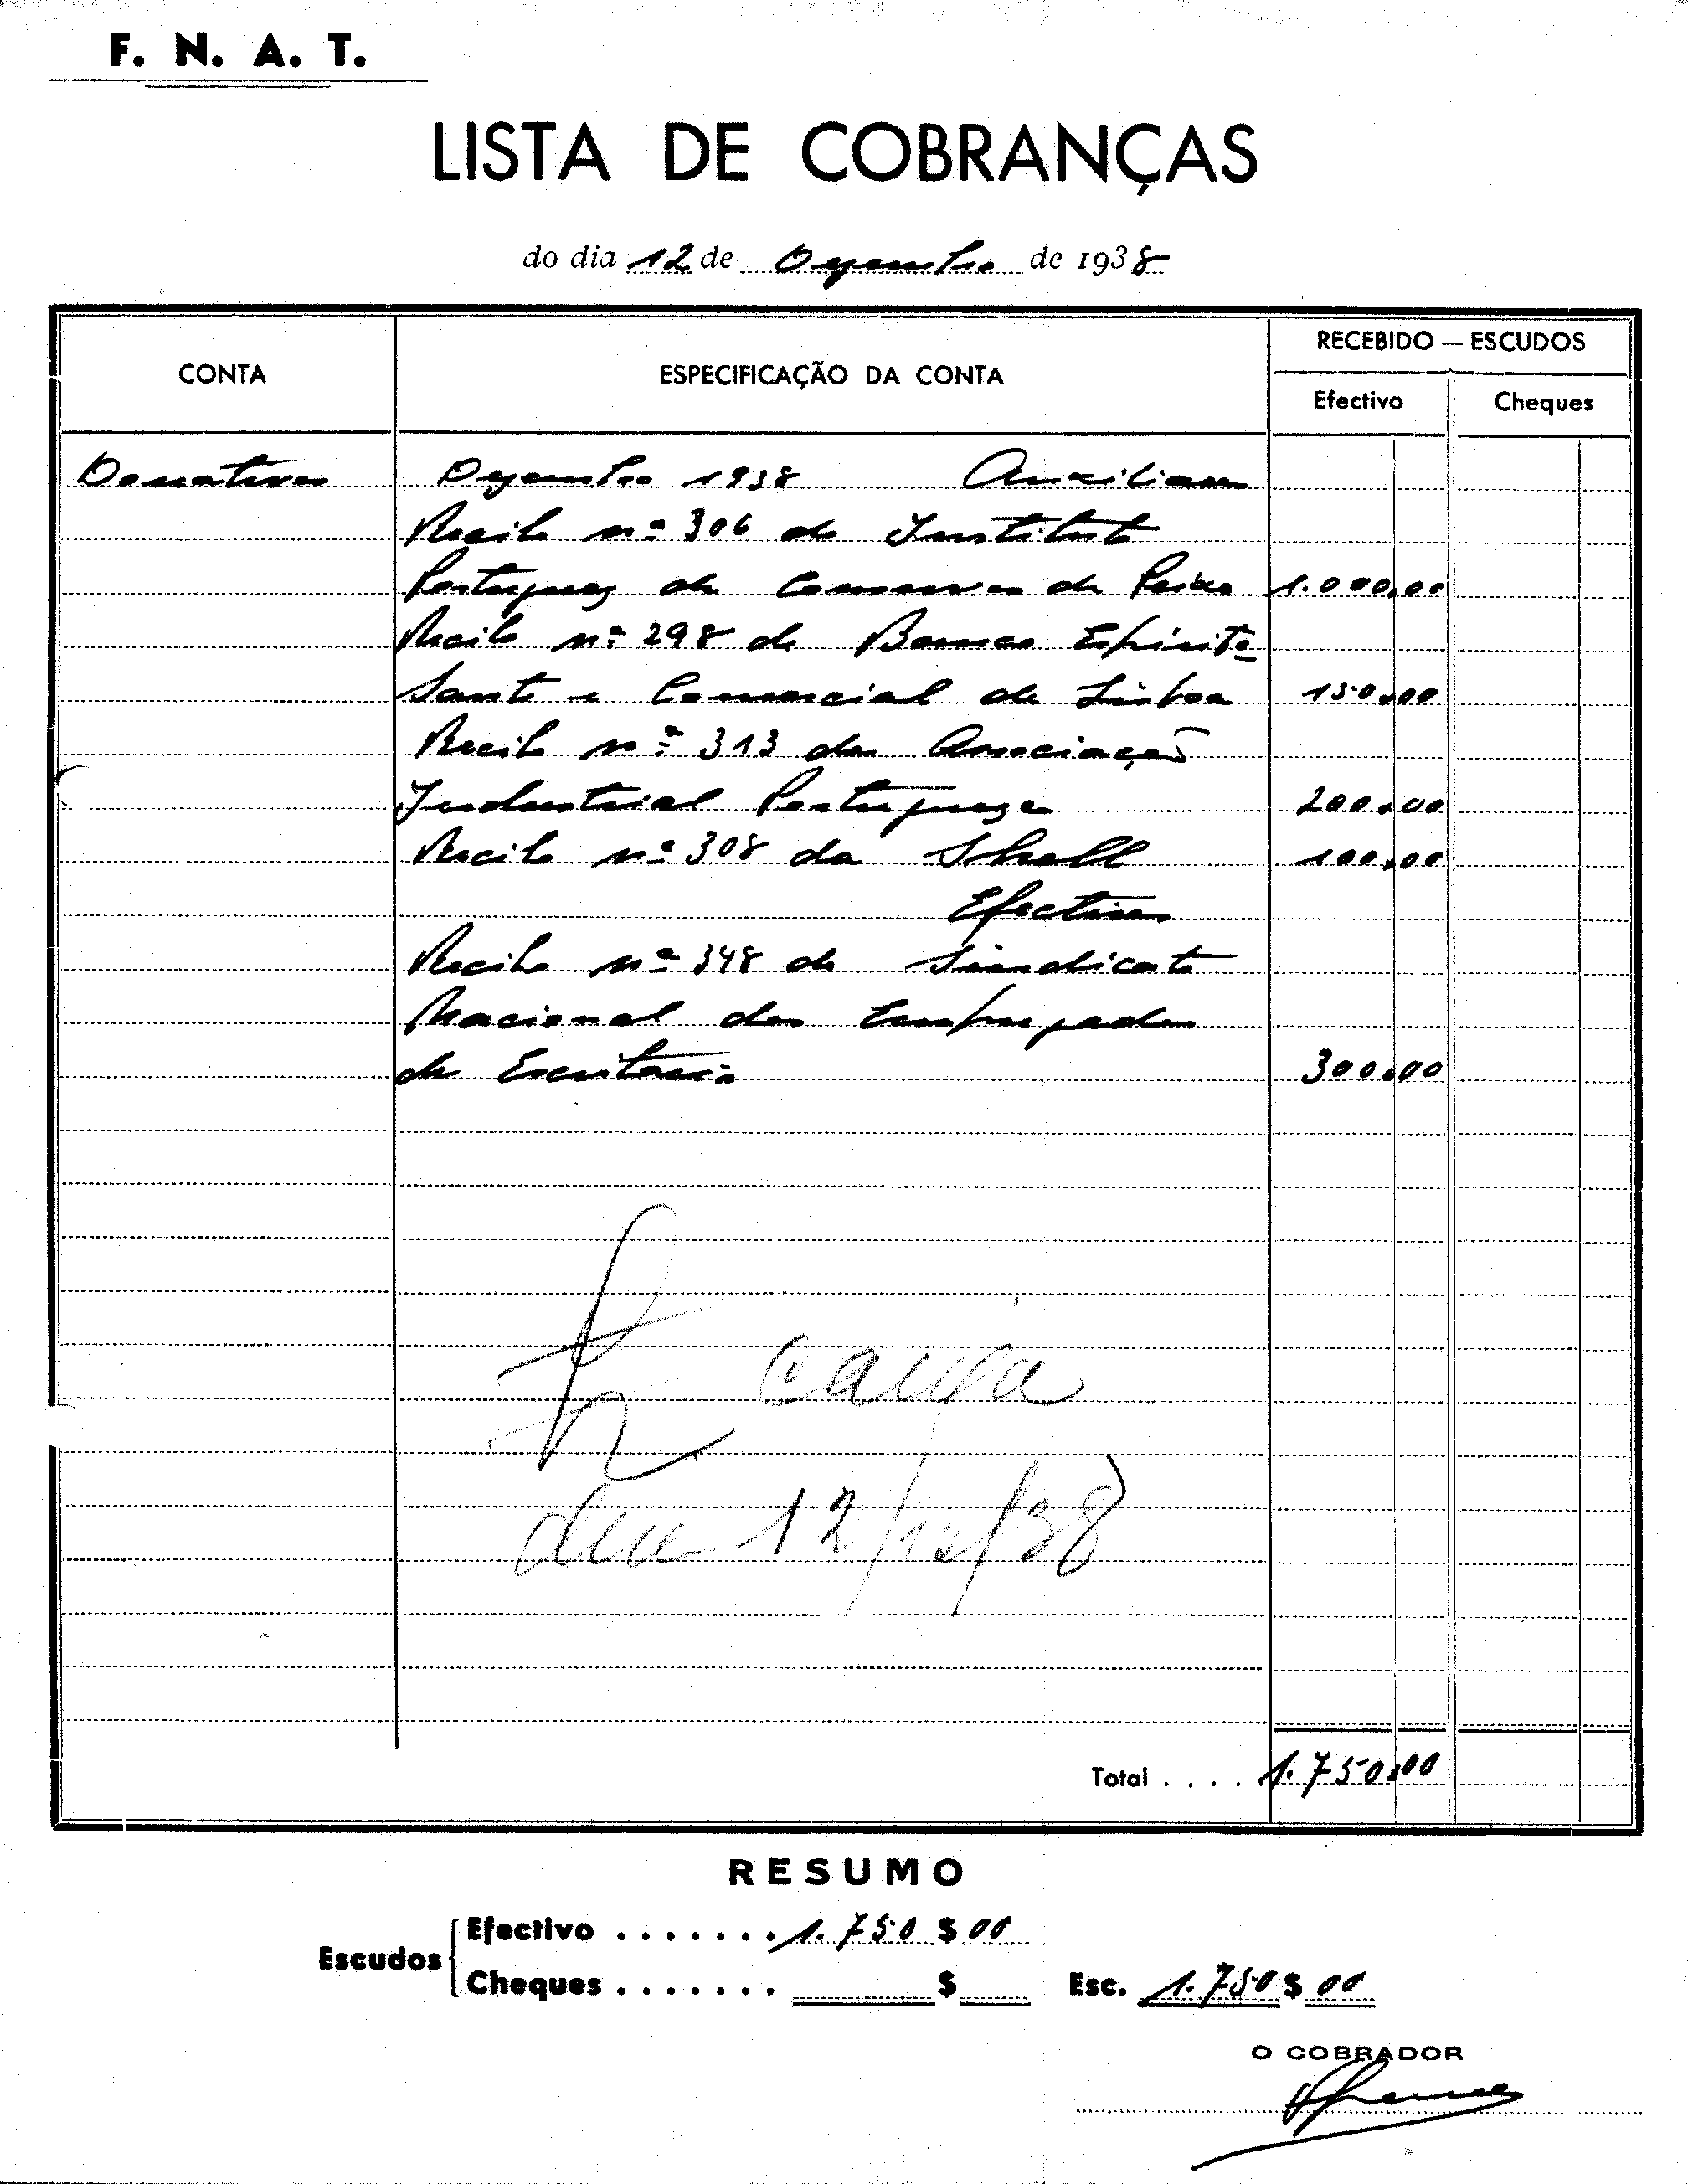 F. N. A. T.
LISTA DE COBRANÇAS
do dia 12 de Dezembro de 1938
CONTA
ESPECIFICAÇÃO DA CONTA
RECEBIDO — ESCUDOS
Efectivo
Cheques
Donativos Dezembro 1938 Auxiliares
Recibo nº 306 do Instituto
Portuguez de Conservas de Peixe 1.000,00
Recibo nº 298 do Banco Espirito
Santo e Comercial de Lisboa 150,00
Recibo nº 313 da Associação
Industrial Portugueza 200,00
Recibo nº 308 da Shell 100,00
Efectivos
Recibo nº 348 do Sindicato
Nacional dos Empregados
de Escritorio 300,00
caixa
deu 12/12/38
Total . . . . 1.750,00
RESUMO
Escudos
Efectivo . . . . . . . 1.750 $ 00
Cheques . . . . . . . $ Esc. 1.750 $ 00
O COBRADOR